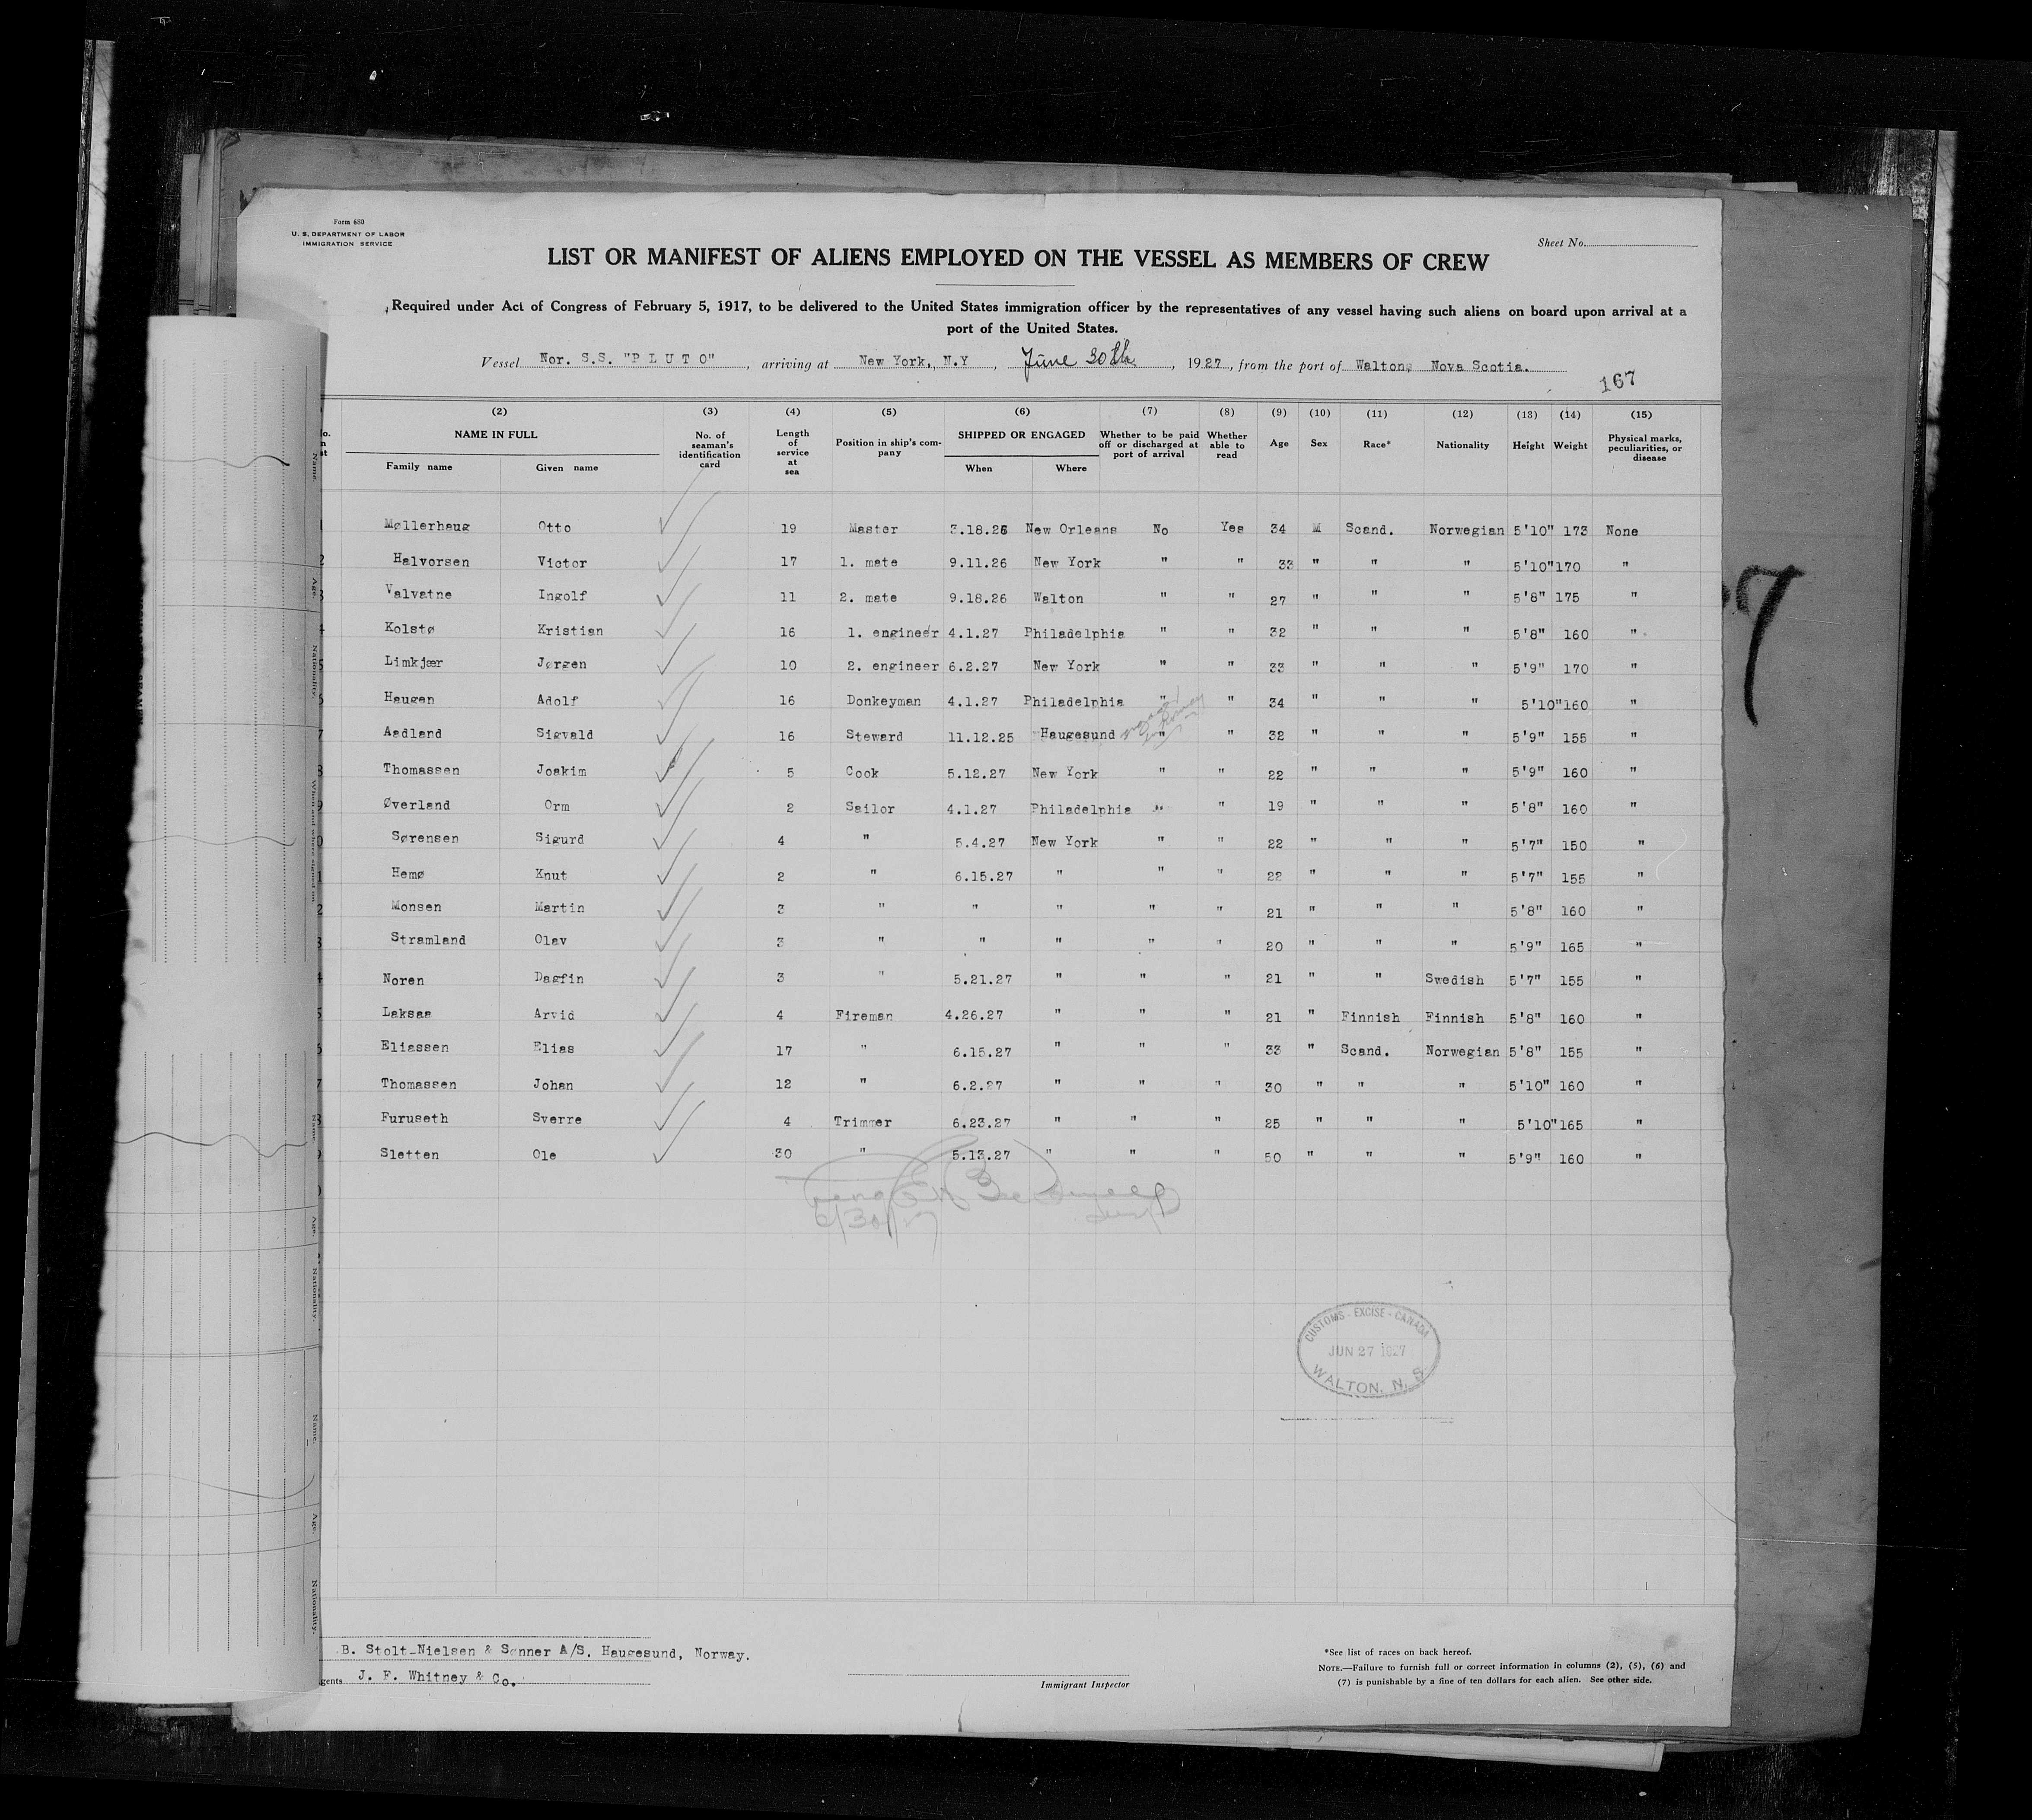 Form 680
U. S. DEPARTMENT OF LABOR
IMMIGRATION SERVICE
Sheet No.
LIST OR MANIFEST OF ALIENS EMPLOYED ON THE VESSEL AS MEMBERS OF CREW
Required under Act of Congress of February 5, 1917, to be delivered to the United States immigration officer by the representatives of any vessel having such aliens on board upon arrival at a
port of the United States.
Vessel Nor. S.S. "P L U T O", arriving at New York, N.Y, June 30th, 1927, from the port of Walton, Nova Scotia.
167
(2) (3) (4) (5) (6) (7) (8) (9) (10) (11) (12) (13) (14) (15)
NAME IN FULL
Family name Given name
No. of seaman's identification card
Length of service at sea
Position in ship's company
SHIPPED OR ENGAGED
When Where
Whether to be paid off or discharged at port of arrival
Whether able to read
Age Sex Race* Nationality Height Weight
Physical marks, peculiarities, or disease
Møllerhaug Otto 19 Master 3.18.26 New Orleans No Yes 34 M Scand. Norwegian 5'10" 173 None
Halvorsen Victor 17 1. mate 9.11.26 New York " " 33 " " " 5'10" 170 "
Valvatne Ingolf 11 2. mate 9.18.26 Walton " " 27 " " " 5'8" 175 "
Kolstø Kristian 16 1. engineer 4.1.27 Philadelphia " " 32 " " " 5'8" 160 "
Limkjær Jørgen 10 2. engineer 6.2.27 New York " " 33 " " " 5'9" 170 "
Haugen Adolf 16 Donkeyman 4.1.27 Philadelphia " " 34 " " " 5'10" 160 "
Aadland Sigvald 16 Steward 11.12.25 Haugesund " " 32 " " " 5'9" 155 "
Thomassen Joakim 5 Cook 5.12.27 New York " " 22 " " " 5'9" 160 "
Øverland Orm 2 Sailor 4.1.27 Philadelphia " " 19 " " " 5'8" 160 "
Sørensen Sigurd 4 " 5.4.27 New York " " 22 " " " 5'7" 150 "
Hemø Knut 2 " 6.15.27 " " " 22 " " " 5'7" 155 "
Monsen Martin 3 " " " " " 21 " " " 5'8" 160 "
Stramland Olav 3 " " " " " 20 " " " 5'9" 165 "
Noren Dagfin 3 " 5.21.27 " " " 21 " " Swedish 5'7" 155 "
Laksaa Arvid 4 Fireman 4.26.27 " " " 21 " Finnish Finnish 5'8" 160 "
Eliassen Elias 17 " 6.15.27 " " " 33 " Scand. Norwegian 5'8" 155 "
Thomassen Johan 12 " 6.2.27 " " " 30 " " " 5'10" 160 "
Furuseth Sverre 4 Trimmer 6.23.27 " " " 25 " " " 5'10" 165 "
Sletten Ole 30 " 5.13.27 " " " 50 " " " 5'9" 160 "
6/30/27
CUSTOMS - EXCISE - CANADA
JUN 27 1927
WALTON, N. S.
B. Stolt-Nielsen & Sønner A/S. Haugesund, Norway.
J. F. Whitney & Co.
Immigrant Inspector
*See list of races on back hereof.
NOTE.—Failure to furnish full or correct information in columns (2), (5), (6) and
(7) is punishable by a fine of ten dollars for each alien. See other side.
Name.
Age.
Nationality.
Name.
Age.
Nationality.
Name.
Age.
Nationality.